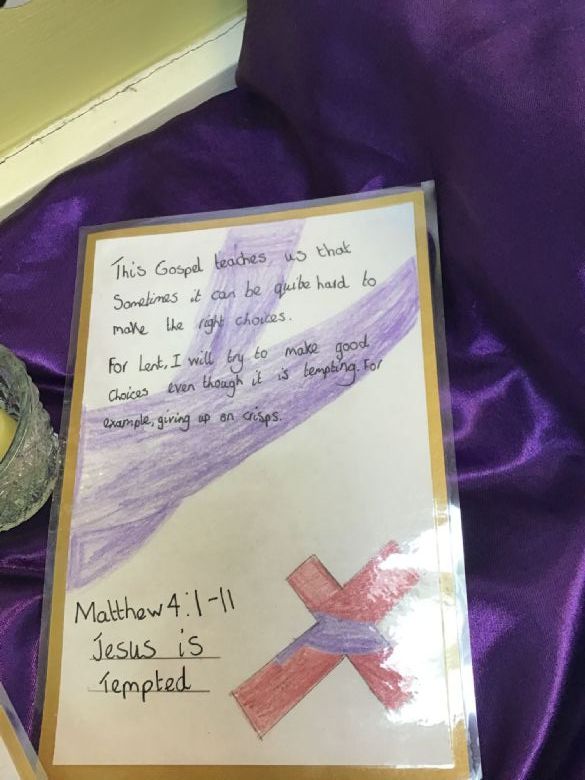 This Gospel teaches us that
Sometimes it can be quite hard to
make the right choices.
For Lent, I will try to make good
Choices even though it is tempting. For
example, giving up on crisps.
Matthew 4:1-11
Jesus is
Tempted